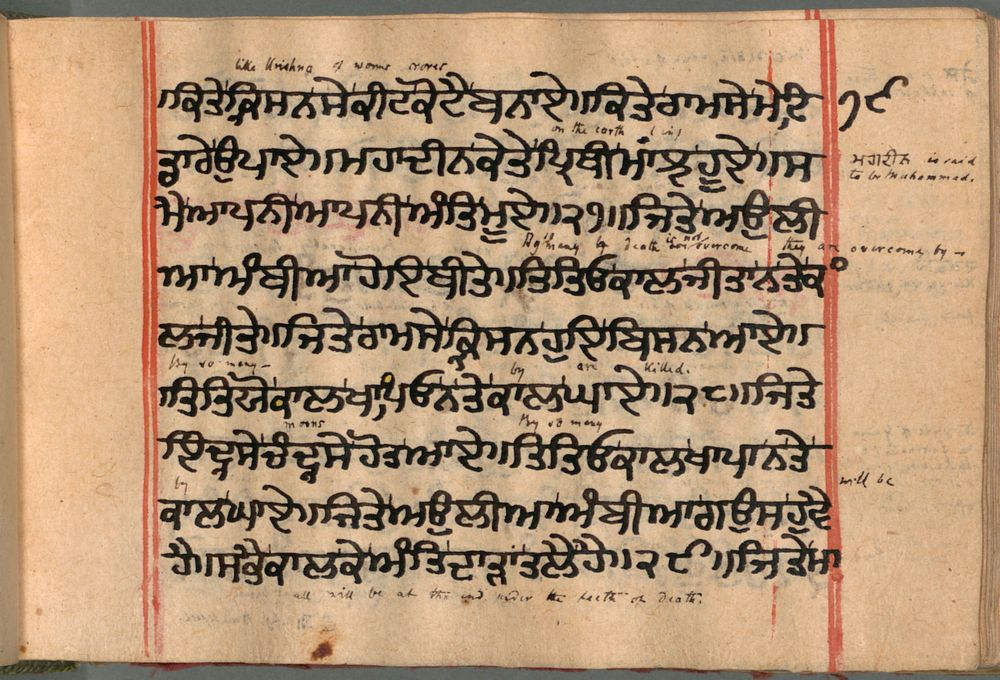 like Krishna of worms crores
।ਕਿਤੇ ਕ੍ਰਿਸਨ ਸੇ ਕੀਟ ਕੋਟੈ ਬਨਾਏ॥ਕਿਤੇ ਰਾਮ ਸੇ ਮੇਟਿ ੧੯
on the earth
ਡਾਰੇ ਉਪਾਏ॥ਮਹਾਦੀਨ ਕੇਤੇ ਪ੍ਰਿਥੀ ਮਾਂਝ ਹੂਏ॥ਸ
is said
to be Muhammad.
ਮੈ ਆਪਨੀ ਆਪਨੀ ਅੰਤਿ ਮੂਏ॥੨੭॥ਜਿਤੇ ਅਉਲੀ
many by death not overcome they are overcome by –
ਆ ਅੰਬੀਆ ਹੋਇ ਬੀਤੇ॥ਤਿਤਿਓ ਕਾਲ ਜੀਤਾ ਨ ਤੇ ਕਾ
ਲ ਜੀਤੇ॥ਜਿਤੇ ਰਾਮ ਸੇ ਕ੍ਰਿਸਨ ਹੁਇ ਬਿਸਨ ਆਏ॥
By so many – by are killed.
ਤਿਤਿਓ ਕਾਲ ਖਾਪਿਓ ਨ ਤੇ ਕਾਲ ਘਾਏ॥੨੮॥ਜਿਤੇ
moons By so many
ਇੰਦ੍ਰ ਸੇ ਚੰਦ੍ਰ ਸੇ ਹੋਤ ਆਏ॥ਤਿਤਿਓ ਕਾਲ ਖਾਪਾ ਨ ਤੇ
by will be
ਕਾਲ ਘਾਏ॥ਜਿਤੇ ਅਉਲੀਆ ਅੰਬੀਆ ਗਉਸ ਹ੍ਵੈ
ਹੈ॥ਸਭੈ ਕਾਲ ਕੇ ਅੰਤਿ ਦਾੜਾ ਤਲੈ ਹੈ॥੨੯॥ਜਿਤੇ ਮਾ
all will be at the end under the teeth of Death.